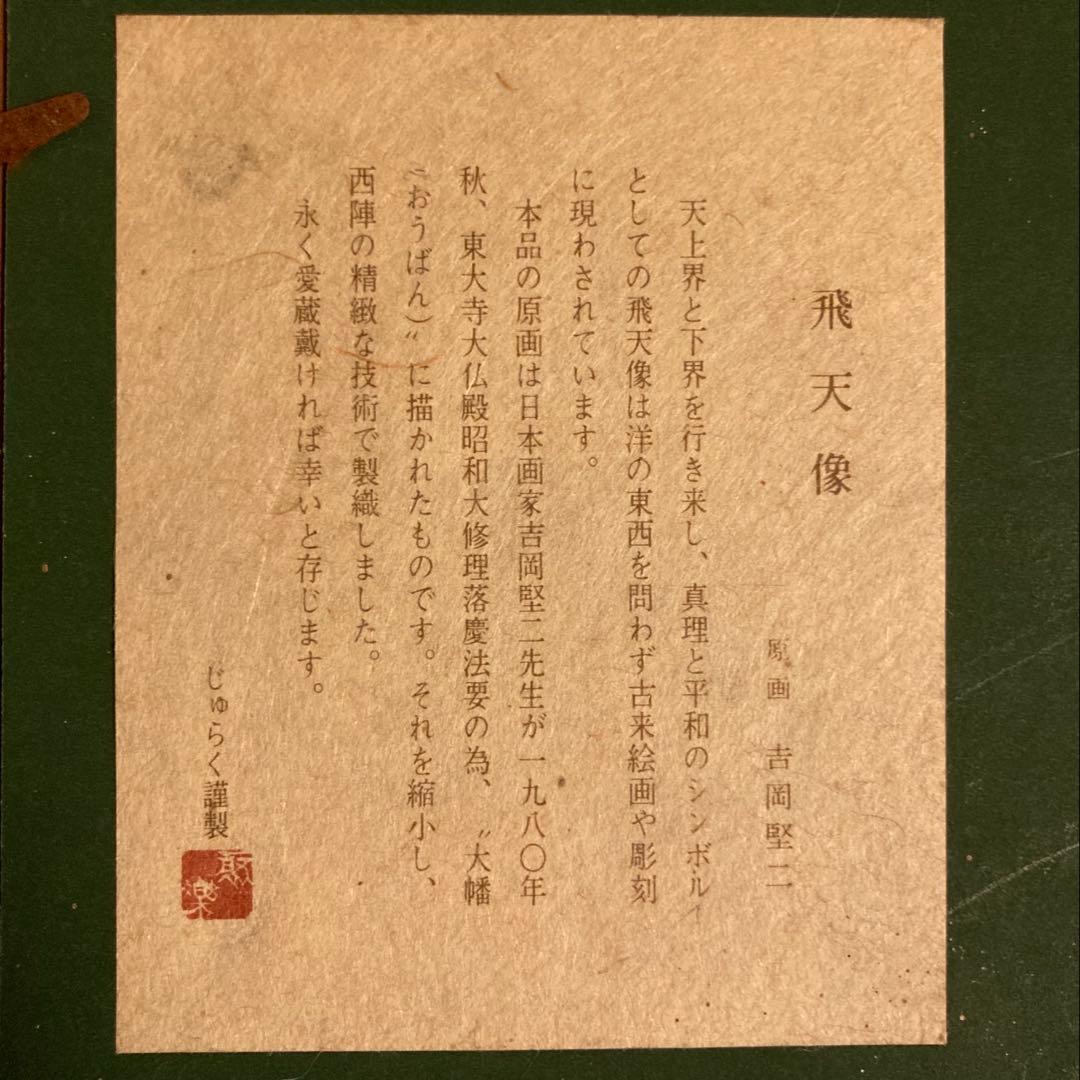 飛天像
原画 吉岡堅二
天上界と下界を行き来し、真理と平和のシンボルイ
としての飛天像は洋の東西を問わず古来絵画や彫刻
に現わされています。
本品の原画は日本画家吉岡堅二先生が一九八〇年
秋、東大寺大仏殿昭和大修理落慶法要の為、〝大幡
(おうばん)〟に描かれたものです。それを縮小し、
西陣の精緻な技術で製織しました。
永く愛蔵戴ければ幸いと存じます。
じゅらく謹製